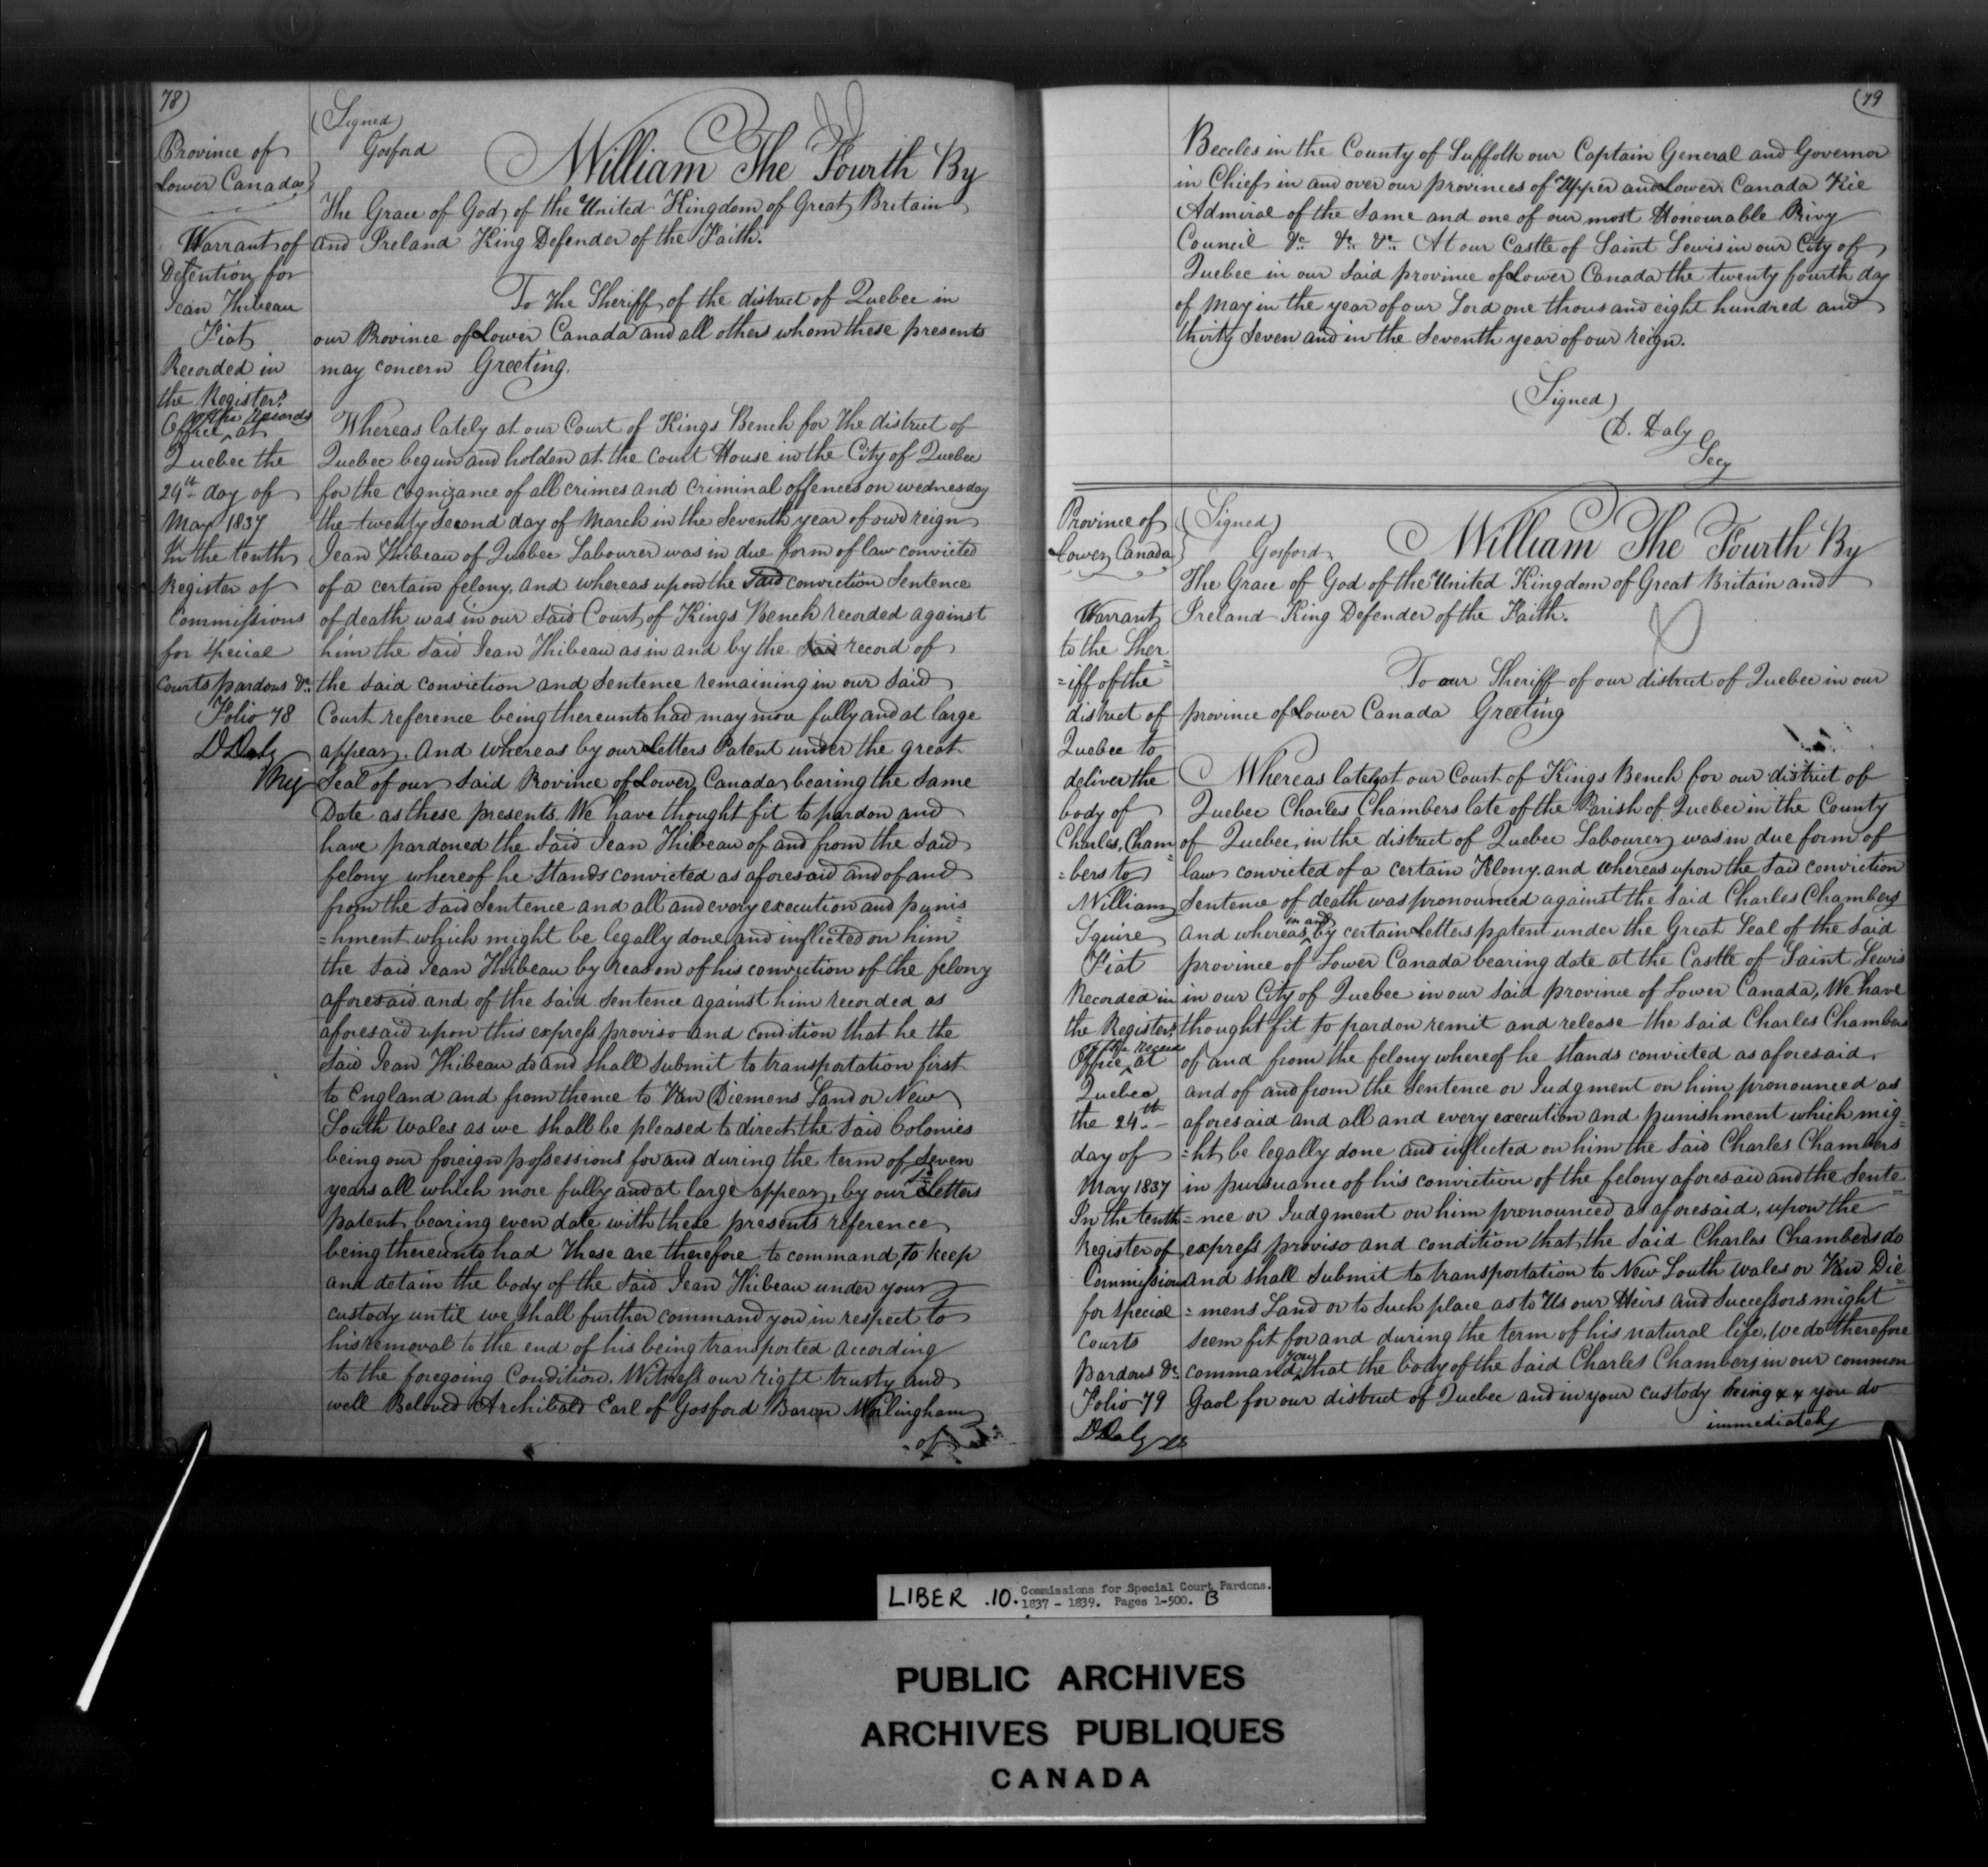 78)
Province of
Lower Canada
Warrant of
Detention for
Jean Thibeau
Fiat
Recorded in
the Registers
of the Records
Office at
Quebec the
24th day of
May 1837
In the tenth
Register of
Commissions
for special
Courts pardons &c
Folio 78
D Daly
Reg
(Signed)
Gosford
William The Fourth By
The Grace of God, of the United Kingdom of Great Britain
and Ireland King Defender of the Faith.
To the Sheriff of the district of Quebec in
our Province of Lower Canada and all others whom these presents
may concern Greeting.
Whereas lately at our Court of Kings Bench for the district of
Quebec begun and holden at the Court House in the City of Quebec
for the cognizance of all crimes and criminal offences on wednesday
the twenty second day of March in the Seventh year of our reign
Jean Thibeau of Quebec Labourer was in due form of law convicted
of a certain felony, and whereas upon the said conviction Sentence
of death was in our said Court of Kings Bench recorded against
him the said Jean Thibeau as in and by the said record of
the said conviction and sentence remaining in our said
Court reference being thereunto had may more fully and at large
appear. And whereas by our Letters Patent under the great
Seal of our said Province of Lower Canada bearing the same
Date as these presents. We have thought fit to pardon and
have pardoned the said Jean Thibeau of and from the said
felony whereof he stands convicted as aforesaid and of and
from the said Sentence and all and every execution and punis
=hment which might be legally done and inflicted on him
the said Jean Thibeau by reason of his conviction of the felony
aforesaid and of the said Sentence against him recorded as
aforesaid upon this express proviso and condition that he the
said Jean Thibeau do and shall submit to transportation first
to England and from thence to Van Diemens Land or New
South Wales as we shall be pleased to direct the said Colonies
being our foreign possessions for and during the term of Seven
years all which more fully and at large appear, by our Letters
patent bearing even date with these presents reference
being thereunto had These are therefore to command, to keep
and detain the body of the said Jean Thibeau under your
custody until we shall further command you in respect to
his removal to the end of his being transported according
to the foregoing Condition. Witness our right trusty and
well Beloved Archibald Earl of Gosford Baron Worlingham
of
(79
Beccles in the County of Suffolk our Captain General and Governor
in Chief in and over our provinces of Upper and Lower Canada Vice
Admiral of the same and one of our most Honourable Privy
Council &c. &c. &c. At our Castle of Saint Lewis in our City of
Quebec in our said province of Lower Canada the twenty fourth day
of May in the year of our Lord one thousand eight hundred and
thirty Seven and in the Seventh year of our reign.
(Signed)
D. Daly
Secy
Province of
Lower Canada
Warrant
to the Sher
=iff of the
district of
Quebec to
deliver the
body of
Charles Cham
=bers to
William
Squire
Fiat
Recorded in
the Registers
of the Records
Office at
Quebec
the 24th
day of
May 1837
In the tenth
Register of
Commissions
for special
Courts
Pardons &c
Folio 79
D Daly
(Signed)
Gosford
William The Fourth By
The Grace of God of the United Kingdom of Great Britain and
Ireland King Defender of the Faith.
To our Sheriff of our district of Quebec in our
province of Lower Canada Greeting
Whereas lately at our Court of Kings Bench for our district of
Quebec Charles Chambers late of the Parish of Quebec in the County
of Quebec, in the district of Quebec Labourer was in due form of
law convicted of a certain Felony. and whereas upon the said conviction
Sentence of death was pronounced against the said Charles Chambers
and whereas in and by certain letters patent under the Great Seal of the said
province of Lower Canada bearing date at the Castle of Saint Lewis
in our City of Quebec in our said province of Lower Canada, We have
thought fit to pardon remit and release the said Charles Chambers
of and from the felony whereof he stands convicted as aforesaid
and of and from the Sentence or Judgment on him pronounced as
aforesaid and all and every execution and punishment which mig=
=ht be legally done and inflicted on him the said Charles Chambers
in pursuance of his conviction of the felony aforesaid and the Sente=
=nce or Judgment on him pronounced as aforesaid, upon the
express proviso and condition that the said Charles Chambers do
and shall submit to transportation to New South Wales or Van Die=
=mens Land or to such place as to Us our Heirs and Successors might
seem fit for and during the term of his natural life, We do therefore
command you that the body of the said Charles Chambers in our common
Gaol for our district of Quebec and in your custody being x x you do
immediately
LIBER .10. Commissions for Special Court Pardons.
1837 - 1839. Pages 1-500. B
PUBLIC ARCHIVES
ARCHIVES PUBLIQUES
CANADA